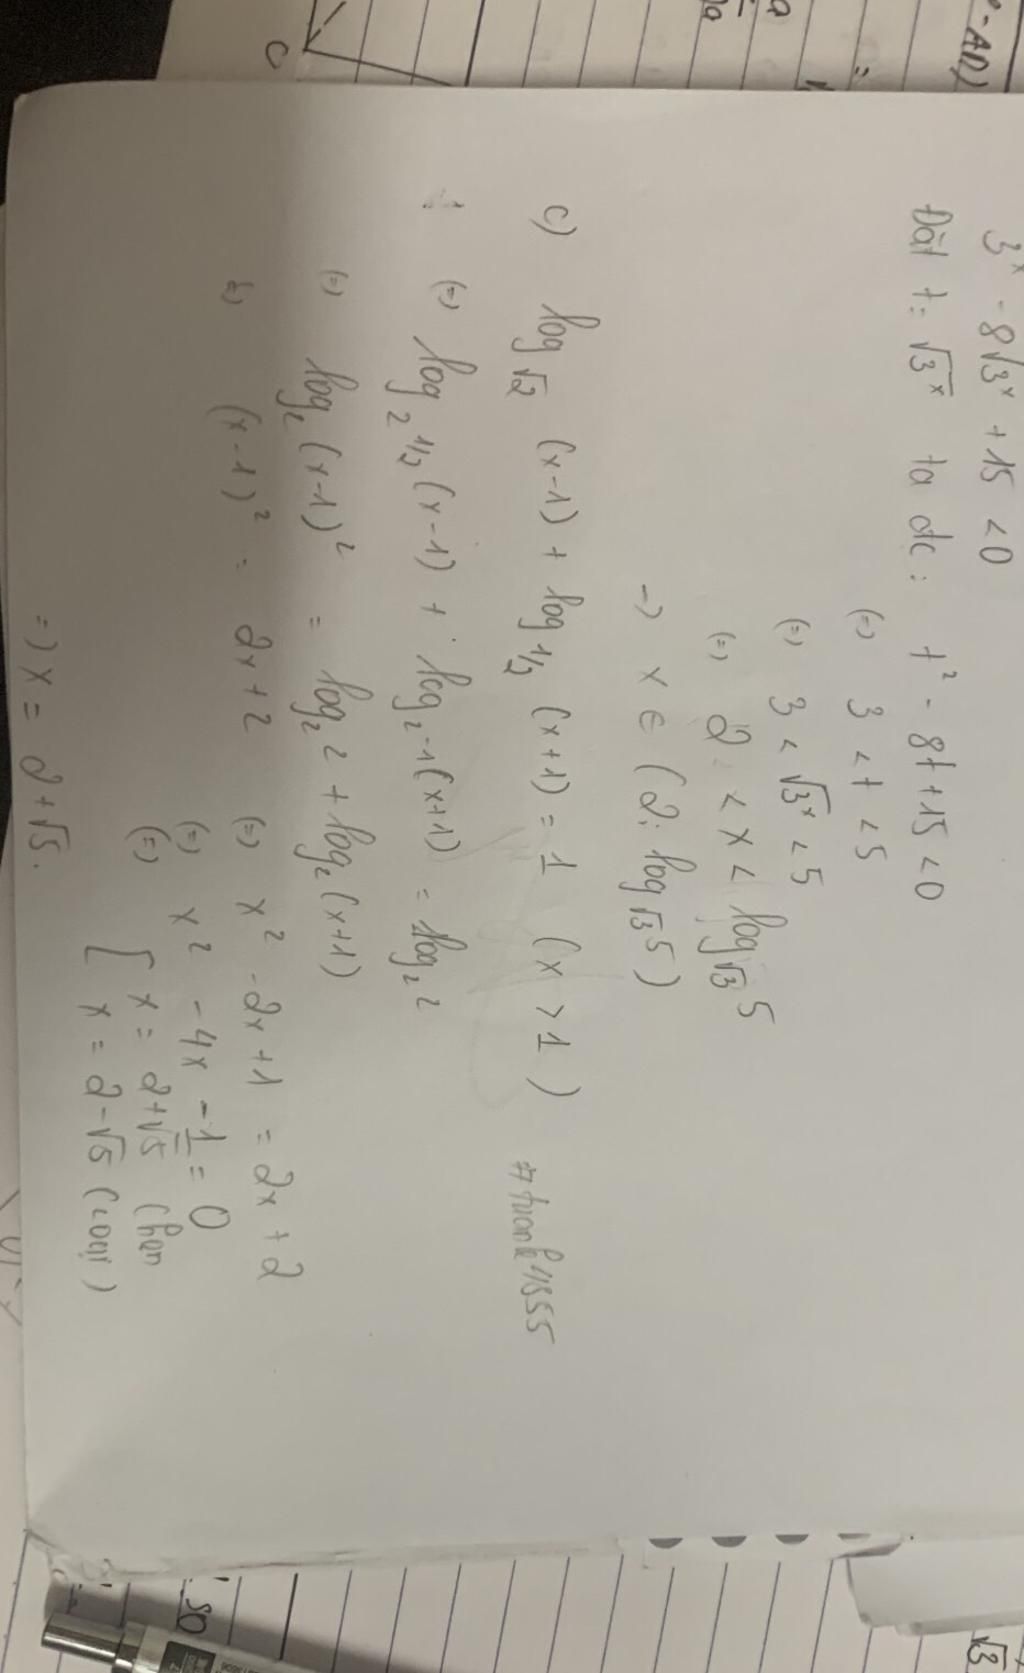 3^x - 8√3^x + 15 < 0
Đặt t = √3^x ta đc : t² - 8t + 15 < 0
(=) 3 < t < 5
(=) 3 < √3^x < 5
(=) 2 < x < log_√3 5
-> x ∈ (2; log_√3 5)
c) log_√2 (x-1) + log_1/2 (x+1) = 1 (x > 1)
#tuanh4855
(=) log_2^1/2 (x-1) + log_2^-1 (x+1) = log_2 2
(=) log_2 (x-1)² = log_2 2 + log_2 (x+1)
(=) (x-1)² = 2x+2 (=) x² - 2x + 1 = 2x + 2
(=) x² - 4x - 1 = 0
(=) [ x = 2+√5 (chọn
x = 2-√5 (loại)
=) x = 2+√5.